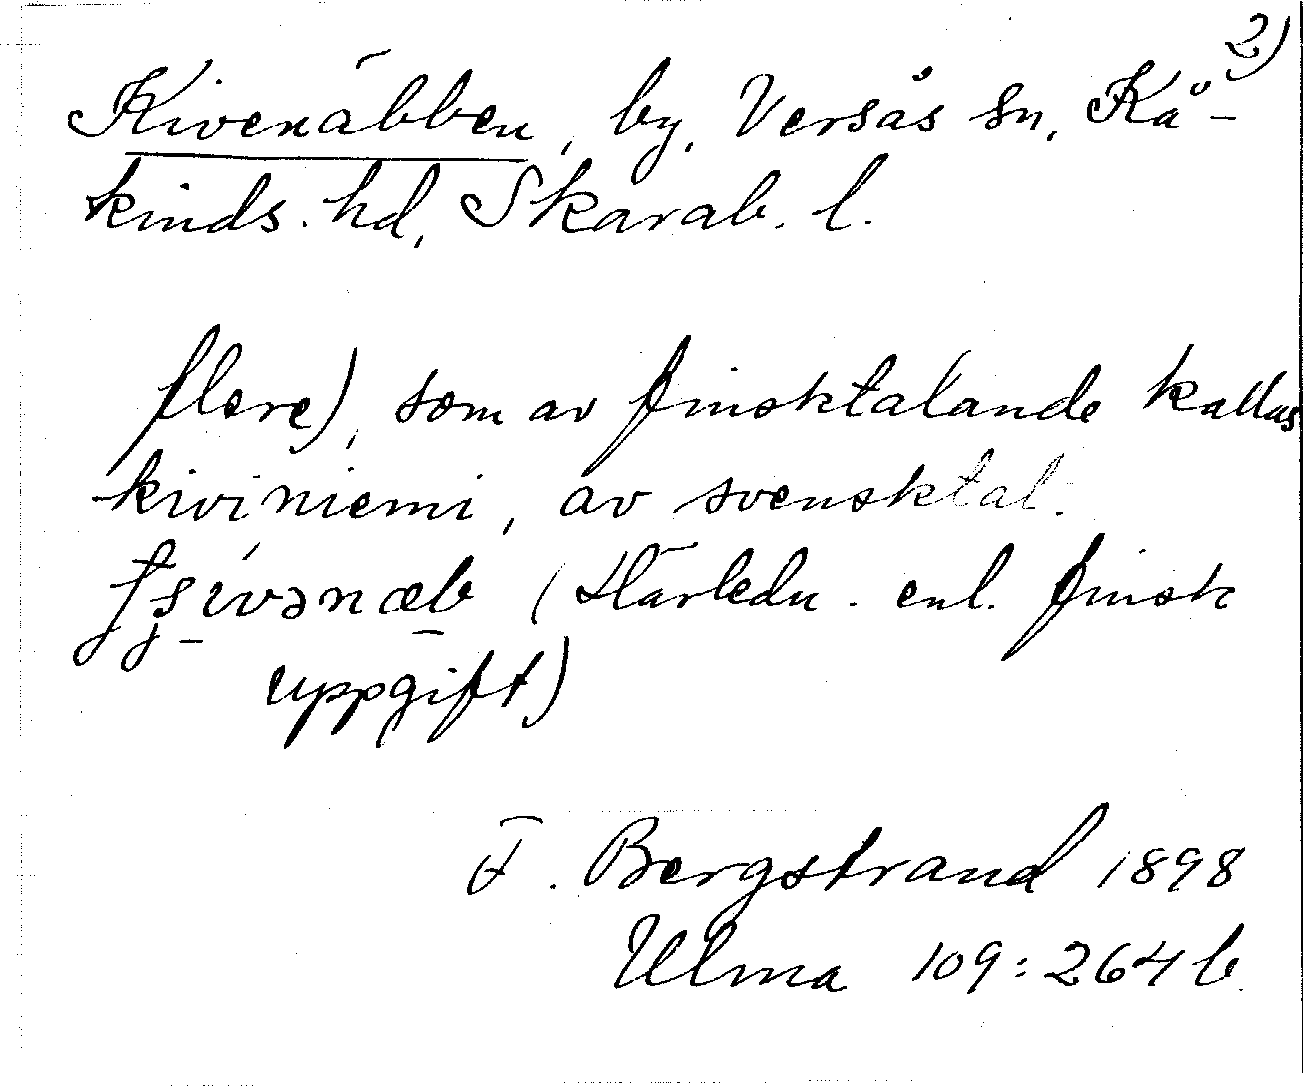 2)
Kivenäbben, by, Versås sn, Kå-
kinds. hd, Skarab. l.
flere), som av finsktalande kallas
kiviniemi, av svensktal.
(Härledn. enl. finsk
uppgift)
F. Bergstrand 1898
Ulma 109:264 b